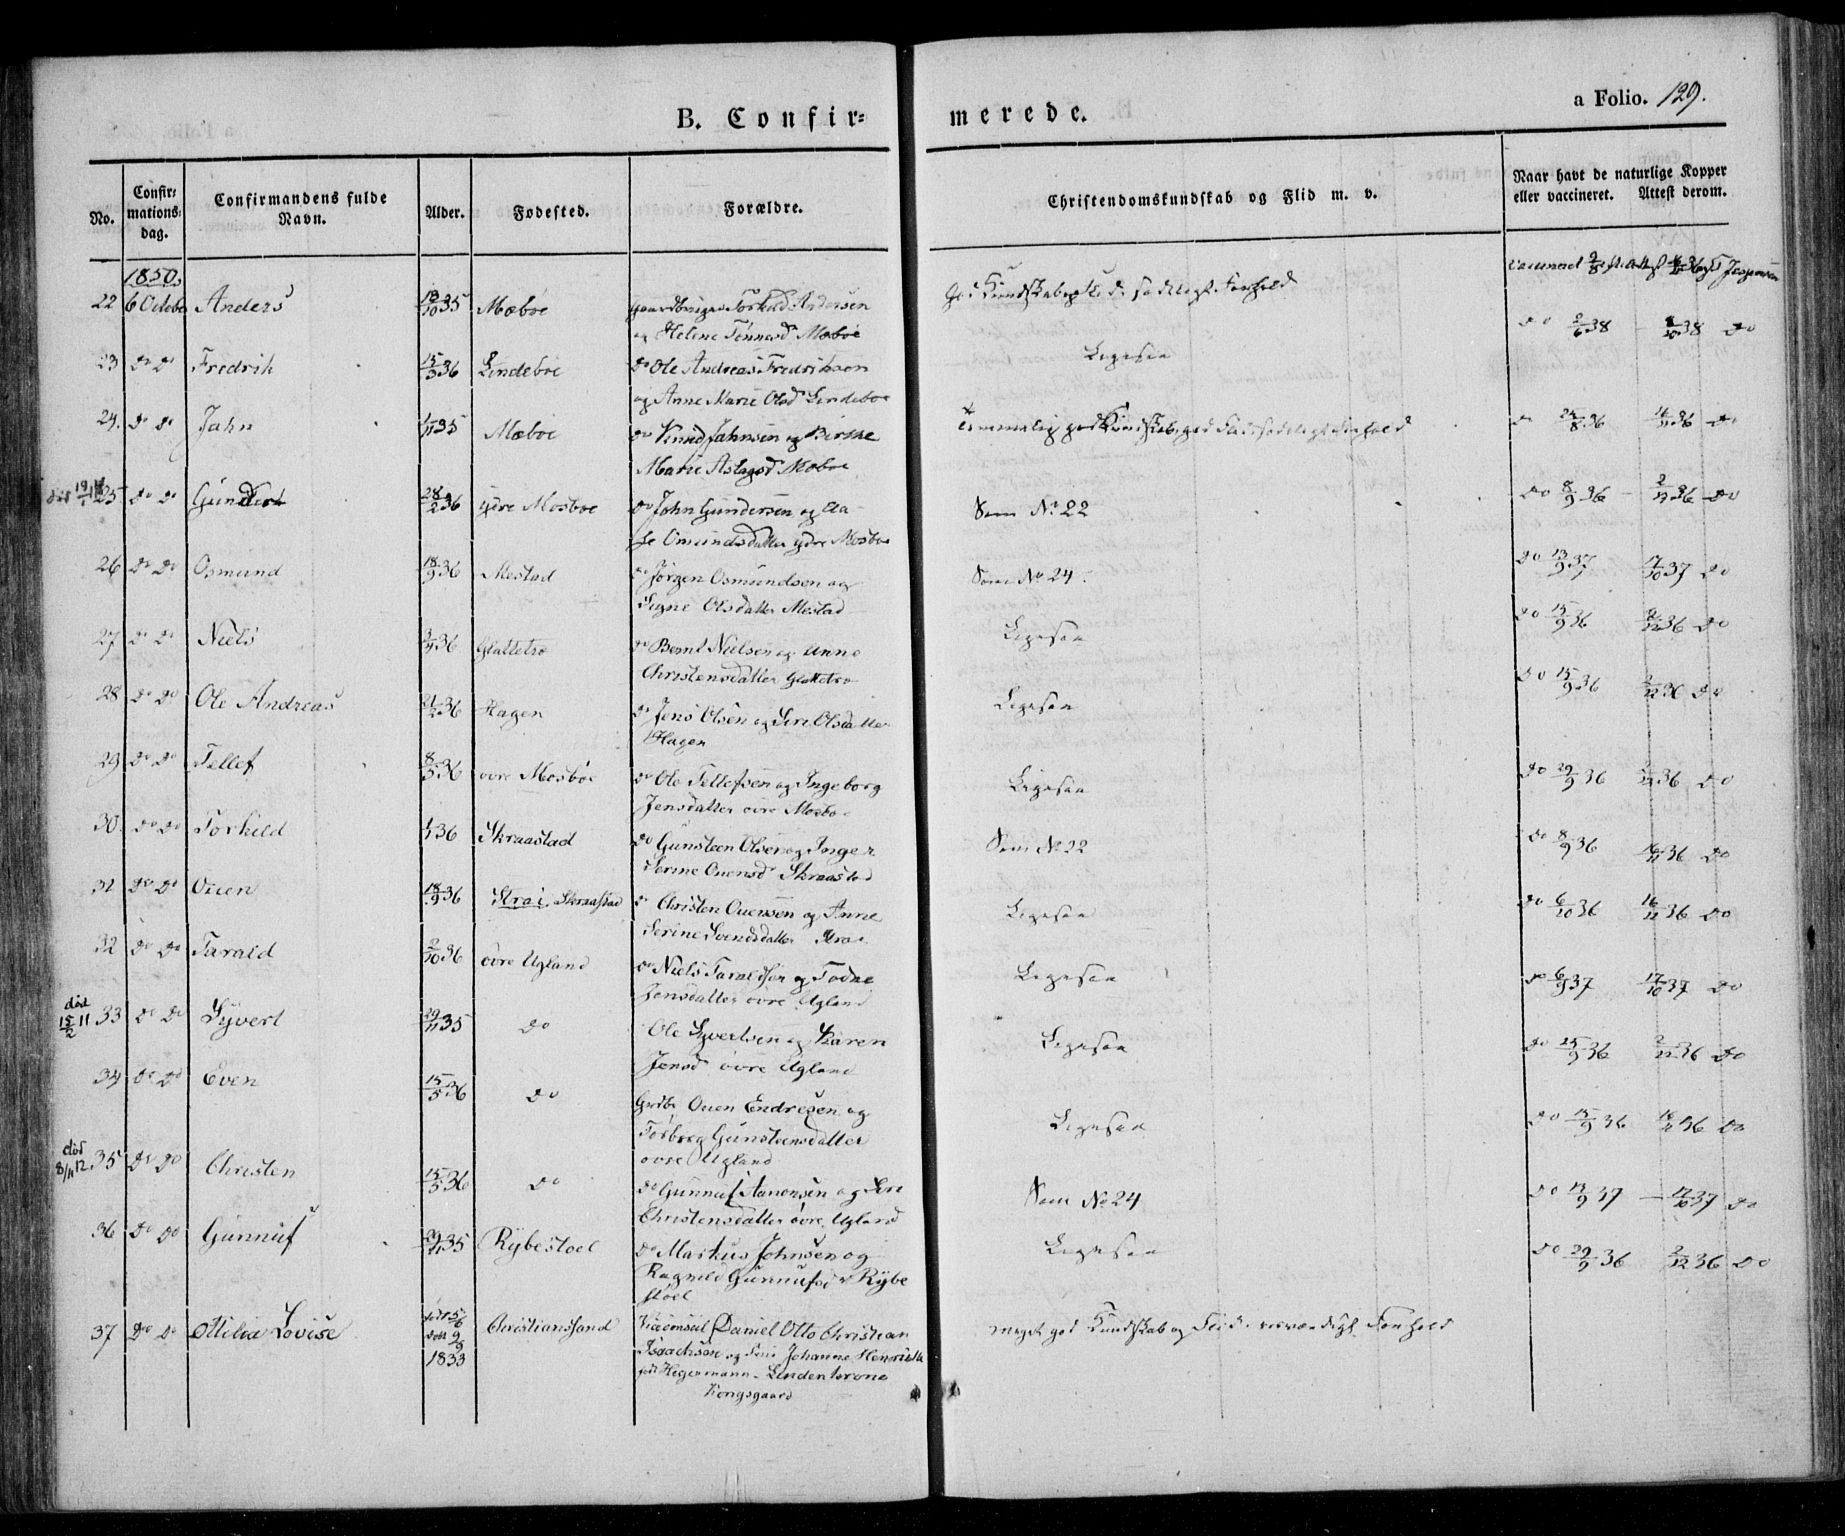 B. Confir=
merede.
a Folio. 129.
No.
Confir=
mations=
dag.
Confirmandens fulde
Navn.
Alder.
Fødested.
Forældre.
Christendomskundskab og Flid m. v.
Naar havt de naturlige Kopper
eller vaccineret. Attest derom.
1850.
22 6 Octobr Anders 18/10 35 Mæboe Torkild Andersen
og Helene Tønnesd Mæboe
god Kundskab sædeligt Forhold
do 2/6 38 8/10 38 do
23 do do Fredrik 15/3 36 Lindeboe do Ole Andreas Fredriksen
og Anne Marie Olsd Lindeboe
Ligesaa
24. do do Jahn 1/11 35 Mæboe do Knud Jahnsen og Birthe
Marie Aslagsd Mæboe
temmelig god Kundskab god Flid sædeligt Forhold
do 24/8 36 16/11 36 do
25 do do Gundert 28/2 36 ydre Mosboe do John Gundersen og Aa-
se Omundsdatter ydre Mosboe
Som No 22
do 8/9 36 - 2/12 36 do
26 do do Osmund 18/9 36 Mestad do Jørgen Osmundsen og
Signe Olsdatter Mestad
Som No 24.
do 13/9 37 17/10 37 do
27 do do Niels 3/4 36 Glattetre do Bernt Nielsen og Anne
Christensdatter Glattetre
Ligesaa
do 15/9 36 2/12 36 do
28 do do Ole Andreas 21/2 36 Hagen do Jens Olsen og Siri Olsdatter
Hagen
Ligesaa
do 15/9 36 2/12 36 do
29 do do Tellef 8/3 36 øvre Mosboe do Ole Tellefsen og Ingeborg
Jensdatter øvre Mosboe
Ligesaa
do 29/9 36 2/12 36 do
30. do do Torkild 1/1 36 Skraastad do Gunsteen Olsen og Inger
Serine Ouensd Skraastad
Som No 22
do 8/9 36 16/11 36 do
31 do do Ouen 18/9 36 Strai Skraastad do Christen Ouensen og Anne
Serine Svendsdatter Strai
Ligesaa
do 6/10 36 16/11 36 do
32 do do Tarald 2/10 36 øvre Ugland do Niels Taraldsen og Todne
Jensdatter øvre Ugland
Ligesaa
do 6/9 37 17/10 37 do
død
15/2 11 33 do do Syvert 29/11 35 do Ole Syvertsen og Karen
Jensd øvre Ugland
Ligesaa
do 25/9 36 2/12 36 do
34 do do Even 15/5 36 do Gdbr Ouen Endresen og
Torborg Gunsteensdatter
øvre Ugland
Ligesaa
do 15/9 36 16/11 36 do
død
8/11 12 35 do do Christen 15/5 36 do do Gunnuf Aanensen og Siri
Christensdatter øvre Ugland
Som No 24
do 13/9 37 - 17/10 37 do
36 do do Gunnuf 29/11 35 Rybestoel do Markus Johnsen og
Ragnild Gunnufsd Rybe
støel
Ligesaa
do 29/9 36 2/12 36 do
37 do do Ottilia Lovise
1833
Christianssand
Viceconsul Daniel Otto Christian
Isaachsen og Johanne Henriette
Hegermann - Lindencrone
Kongsgaard
meget god Kundskab og Flid Forhold